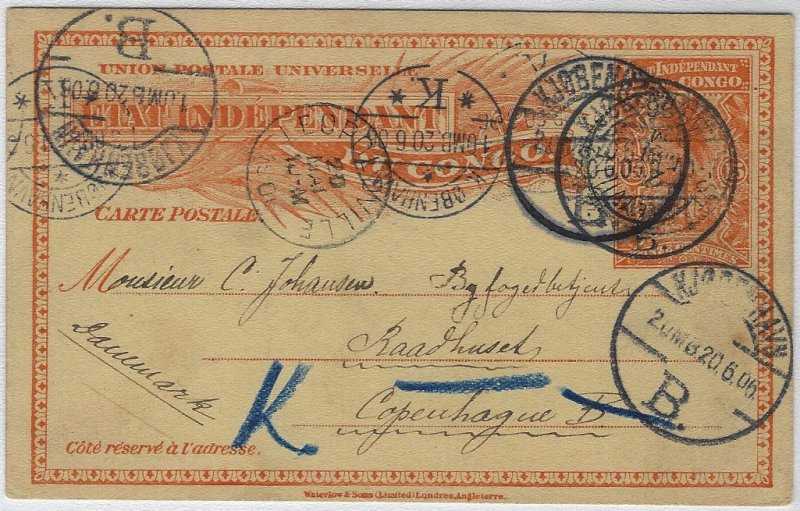 UNION POSTALE UNIVERSELLE
ETAT INDÉPENDANT
DU CONGO
CARTE POSTALE
INDÉPENDANT
CONGO
CENTIMES
KJØBENHAVN
1.OMB.20.6.0
B.
K.
KJØBENHAVN
1.OMB.20.6.0
LEOPOLDVILLE
KJØBENHAVN
B.
KJØBENHAVN
2.OMB.20.6.06.
B.
Monsieur C. Johansen. Bygfogedbetjent
Raadhuset
Copenhague B
Danemark
K
Côté réservé à l'adresse.
Waterlow & Sons (Limited) Londres, Angleterre.